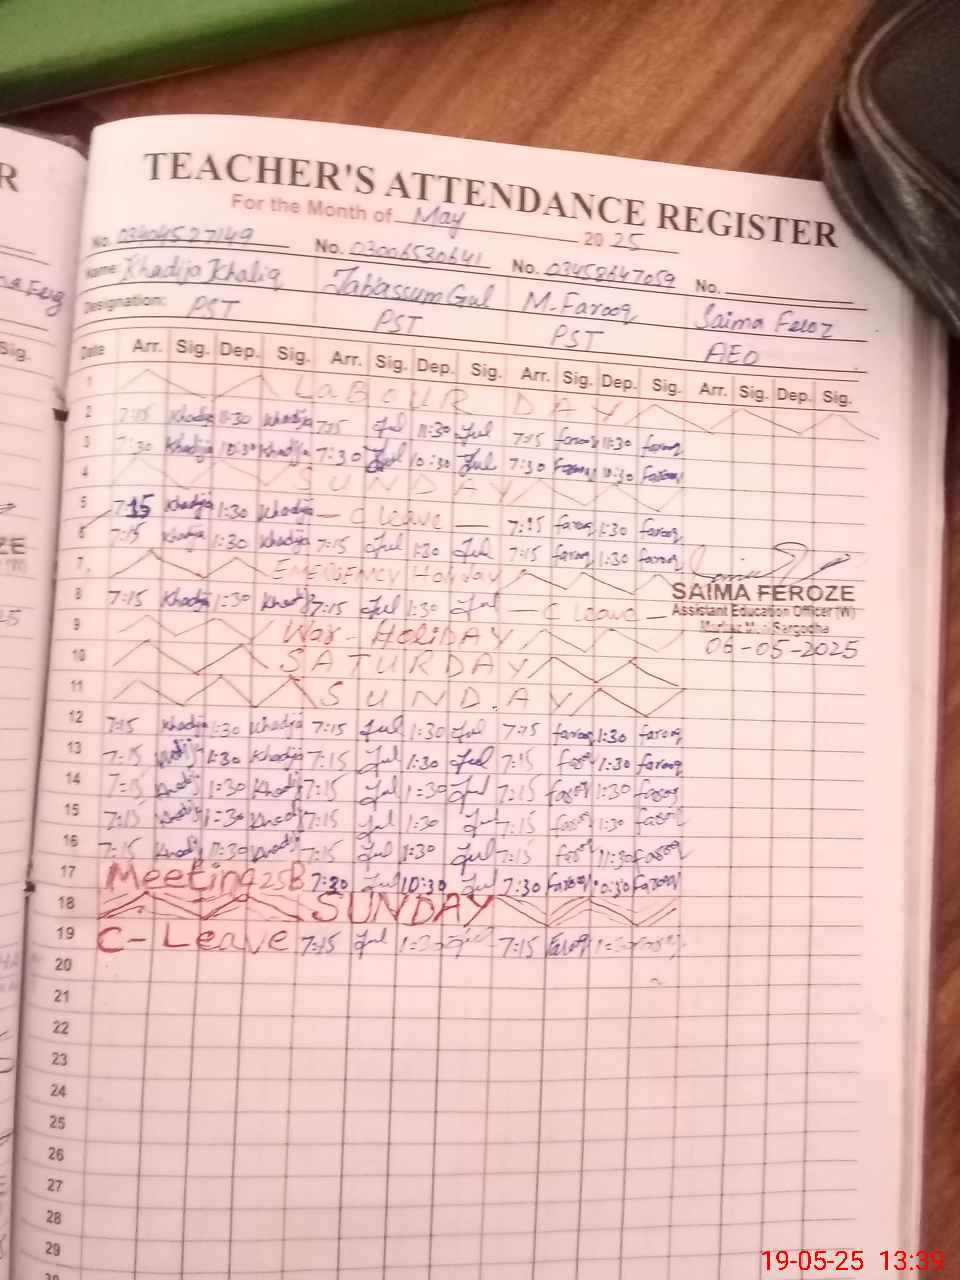 R
TEACHER'S ATTENDANCE REGISTER
For the Month of May 2025
No. 03404527149 No. 03006530641 No. 03458647059 No.
Name: Khadija Khaliq Tabassum Gul M. Farooq Saima Feroz
Designation: PST PST PST AEO
Date Arr. Sig. Dep. Sig. Arr. Sig. Dep. Sig. Arr. Sig. Dep. Sig. Arr. Sig. Dep. Sig.
1 LABOUR DAY
2 7:15 Khadija 11:30 Khadija 7:15 Gul 11:30 Gul 7:15 farooq 11:30 farooq
3 7:30 Khadija 10:30 Khadija 7:30 Gul 10:30 Gul 7:30 Farooq 10:30 Farooq
4 SUNDAY
5 7:15 Khadija 1:30 Khadija - C leave - 7:15 farooq 1:30 farooq
6 7:15 Khadija 1:30 Khadija 7:15 Gul 1:30 Gul 7:15 farooq 1:30 farooq
7 EMERGENCY Holiday
SAIMA FEROZE
8 7:15 Khadija 1:30 Khadija 7:15 Gul 1:30 Gul - C leave -
Assistant Education Officer (W)
Sargodha
9 War-HoliDAY
06-05-2025
10 SATURDAY
11 SUNDAY
12 7:15 Khadija 1:30 Khadija 7:15 Gul 1:30 Gul 7:15 farooq 1:30 farooq
13 7:15 Khadija 1:30 Khadija 7:15 Gul 1:30 Gul 7:15 farooq 1:30 farooq
14 7:15 Khadija 1:30 Khadija 7:15 Gul 1:30 Gul 7:15 farooq 1:30 farooq
15 7:15 Khadija 1:30 Khadija 7:15 Gul 1:30 Gul 7:15 farooq 1:30 farooq
16 7:15 Khadija 11:30 Khadija 7:15 Gul 1:30 Gul 7:15 farooq 11:30 farooq
17 Meeting 25B 7:30 Gul 10:30 Gul 7:30 Farooq 10:30 Farooq
18 SUNDAY
19 C-Leave 7:15 Gul 1:30 Gul 7:15 Farooq 1:30 farooq
20
21
22
23
24
25
26
27
28
29
19-05-25 13:39